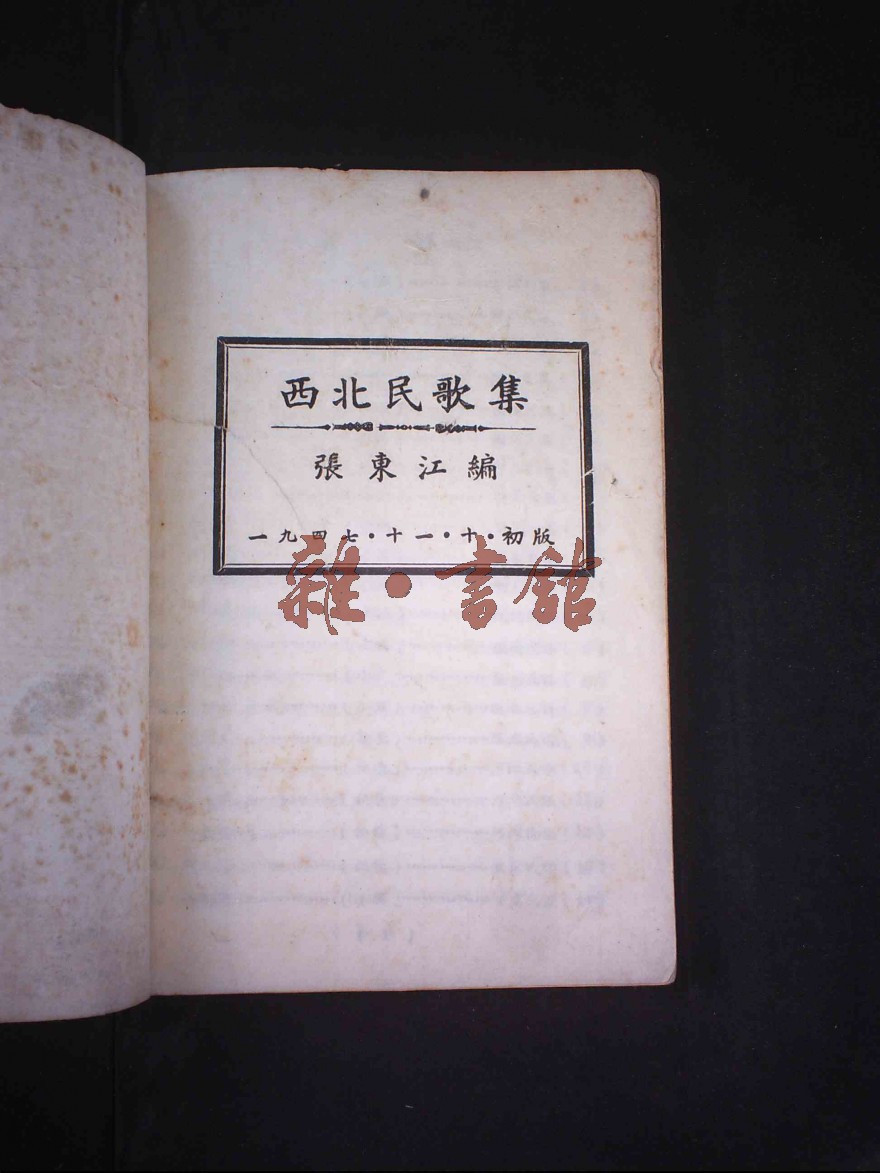 西北民歌集
張東江編
一九四七·十一·十·初版
雜·書館